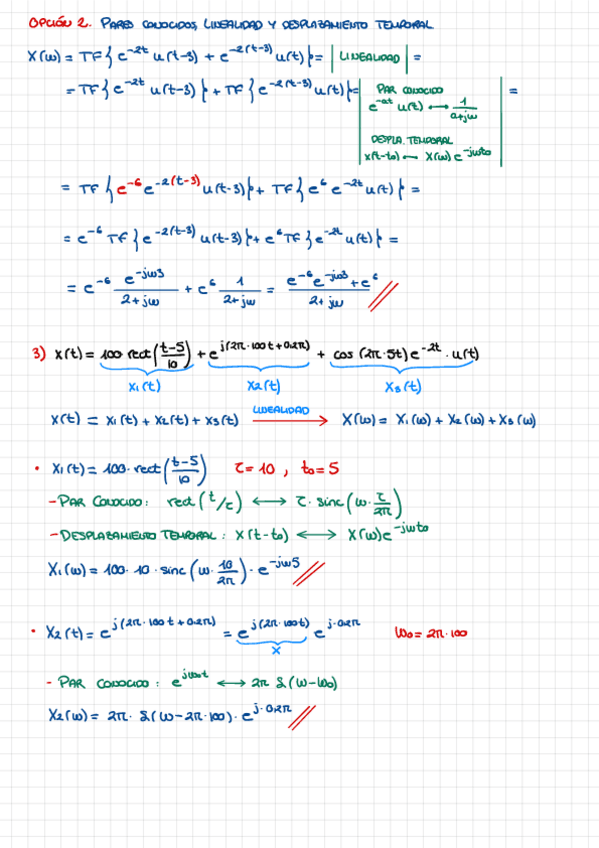 OPCIÓN 2. PARES CONOCIDOS, LINEALIDAD Y DESPLAZAMIENTO TEMPORAL
X(ω) = TF{e^{-2t} u(t-3) + e^{-2(t-3)} u(t)} = | LINEALIDAD | =
= TF{e^{-2t} u(t-3)} + TF{e^{-2(t-3)} u(t)} = | PAR CONOCIDO =
e^{-at} u(t) ⟷ 1/(a+jω)
DESPLA. TEMPORAL
x(t-t0) ⟷ X(ω) e^{-jωt0}
= TF{e^{-6} e^{-2(t-3)} u(t-3)} + TF{e^{6} e^{-2t} u(t)} =
= e^{-6} TF{e^{-2(t-3)} u(t-3)} + e^{6} TF{e^{-2t} u(t)} =
= e^{-6} e^{-jω3}/(2+jω) + e^{6} 1/(2+jω) = (e^{-6} e^{-jω3} + e^{6})/(2+jω) //
3) x(t) = 100 rect((t-5)/10) + e^{j(2π·100t+0.2π)} + cos(2π·5t) e^{-2t} · u(t)
x1(t) x2(t) x3(t)
x(t) = x1(t) + x2(t) + x3(t) LINEALIDAD ⟶ X(ω) = X1(ω) + X2(ω) + X3(ω)
• X1(t) = 100· rect((t-5)/10) τ = 10 , t0 = 5
- PAR CONOCIDO: rect(t/τ) ⟷ τ · sinc(ω·τ/2π)
- DESPLAZAMIENTO TEMPORAL: x(t-t0) ⟷ X(ω)e^{-jωt0}
X1(ω) = 100· 10 · sinc(ω·10/2π) · e^{-jω5} //
• X2(t) = e^{j(2π·100t+0.2π)} = e^{j(2π·100t)} e^{j·0.2π} ω0 = 2π·100
X
- PAR CONOCIDO: e^{jω0t} ⟷ 2π δ(ω-ω0)
X2(ω) = 2π· δ(ω-2π·100)· e^{j·0.2π} //